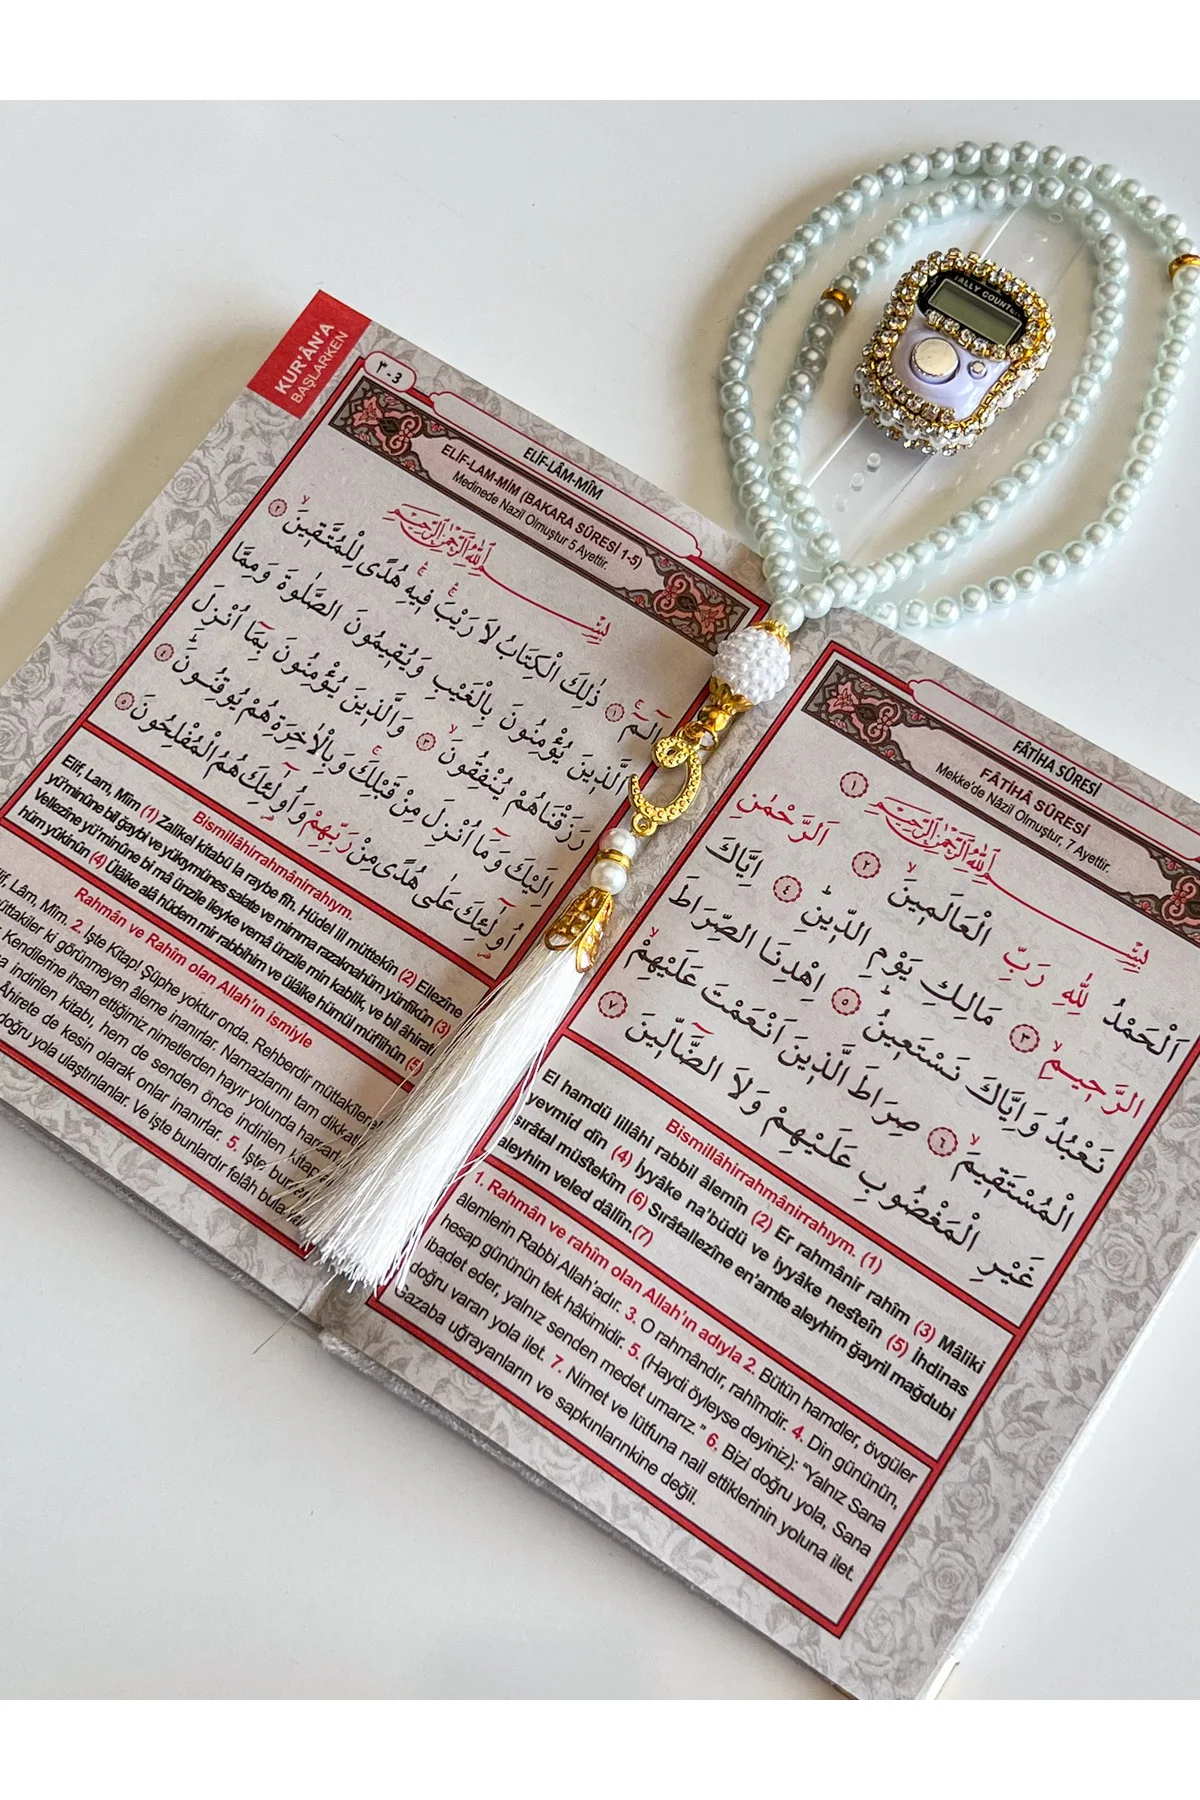 TALLY COUNTER
KUR'ÂN'A
BAŞLARKEN
٣-3
ELİF-LÂM-MÎM
ELİF-LAM-MİM (BAKARA SÛRESİ 1-5)
Medinede Nazil Olmuştur 5 Ayettir.
بِسْمِ اللّٰهِ الرَّحْمٰنِ الرَّحِيمِ
الٓمٓ ۚ ﴿١﴾ ذٰلِكَ الْكِتَابُ لَا رَيْبَ ۚ فِيهِ ۚ هُدًى لِلْمُتَّقِينَ ۙ ﴿٢﴾
اَلَّذِينَ يُؤْمِنُونَ بِالْغَيْبِ وَيُقِيمُونَ الصَّلٰوةَ وَمِمَّا
رَزَقْنَاهُمْ يُنْفِقُونَ ۙ ﴿٣﴾ وَالَّذِينَ يُؤْمِنُونَ بِمَٓا اُنْزِلَ
اِلَيْكَ وَمَٓا اُنْزِلَ مِنْ قَبْلِكَ ۚ وَبِالْاٰخِرَةِ هُمْ يُوقِنُونَ ۜ ﴿٤﴾
اُو۬لٰٓئِكَ عَلٰى هُدًى مِنْ رَبِّهِمْ وَاُو۬لٰٓئِكَ هُمُ الْمُفْلِحُونَ ﴿٥﴾
Bismillâhirrahmânirrahıym.
Elif, Lam, Mîm (1) Zalikel kitabü la raybe fih. Hüdel lil müttekîn (2) Ellezîne
yü'minûne bil ğaybi ve yükıymûnes salate ve mimma razaknahüm yünfikûn (3)
Vellezîne yü'minûne bi mâ ünzile ileyke vemâ ünzile min kablik, ve bil âhirati
hüm yûkinûn (4) Ülâike alâ hüdem mir rabbihim ve ülâike hümül müflihûn (5)
Rahmân ve Rahîm olan Allah'ın ismiyle
Elif, Lâm, Mîm. 2. İşte Kitap! Şüphe yoktur onda. Rehberdir müttakîlere
müttakiler ki görünmeyen âleme inanırlar. Namazlarını tam dikkatle
Kendilerine ihsan ettiğimiz nimetlerden hayır yolunda
indirilen kitabı, hem de senden önce indirilen
Âhirete de kesin olarak onlar inanırlar. 5. İşte
doğru yola ulaştırılanlar. Ve işte bunlardır felâh
FÂTİHA SÛRESİ
FÂTİHÂ SÛRESİ
Mekke'de Nâzil Olmuştur, 7 Ayettir.
بِسْمِ اللّٰهِ الرَّحْمٰنِ الرَّحِيمِ ﴿١﴾
اَلْحَمْدُ لِلّٰهِ رَبِّ الْعَالَمِينَ ۙ ﴿٢﴾ اَلرَّحْمٰنِ
الرَّحِيمِ ۙ ﴿٣﴾ مَالِكِ يَوْمِ الدِّينِ ۜ ﴿٤﴾ اِيَّاكَ
نَعْبُدُ وَاِيَّاكَ نَسْتَعِينُ ۜ ﴿٥﴾ اِهْدِنَا الصِّرَاطَ
الْمُسْتَقِيمَ ۙ ﴿٦﴾ صِرَاطَ الَّذِينَ اَنْعَمْتَ عَلَيْهِمْ ۙ
غَيْرِ الْمَغْضُوبِ عَلَيْهِمْ وَلَا الضَّٓالِّينَ ﴿٧﴾
Bismillâhirrahmânirrahıym. (1)
El hamdü lillâhi rabbil âlemîn (2) Er rahmânir rahîm (3) Mâliki
yevmid dîn (4) İyyâke na'büdü ve iyyâke nesteîn (5) İhdinas
sırâtal müstekîm (6) Sırâtallezîne en'amte aleyhim ğayril mağdubi
aleyhim veled dâllîn.(7)
1. Rahmân ve rahîm olan Allah'ın adıyla 2. Bütün hamdler, övgüler
âlemlerin Rabbi Allah'adır. 3. O rahmândır, rahîmdir. 4. Din gününün,
hesap gününün tek hâkimidir. 5. (Haydi öyleyse deyiniz): "Yalnız Sana
ibadet eder, yalnız senden medet umarız." 6. Bizi doğru yola, Sana
doğru varan yola ilet. 7. Nimet ve lütfuna nail ettiklerinin yoluna ilet.
Gazaba uğrayanların ve sapkınlarınkine değil.